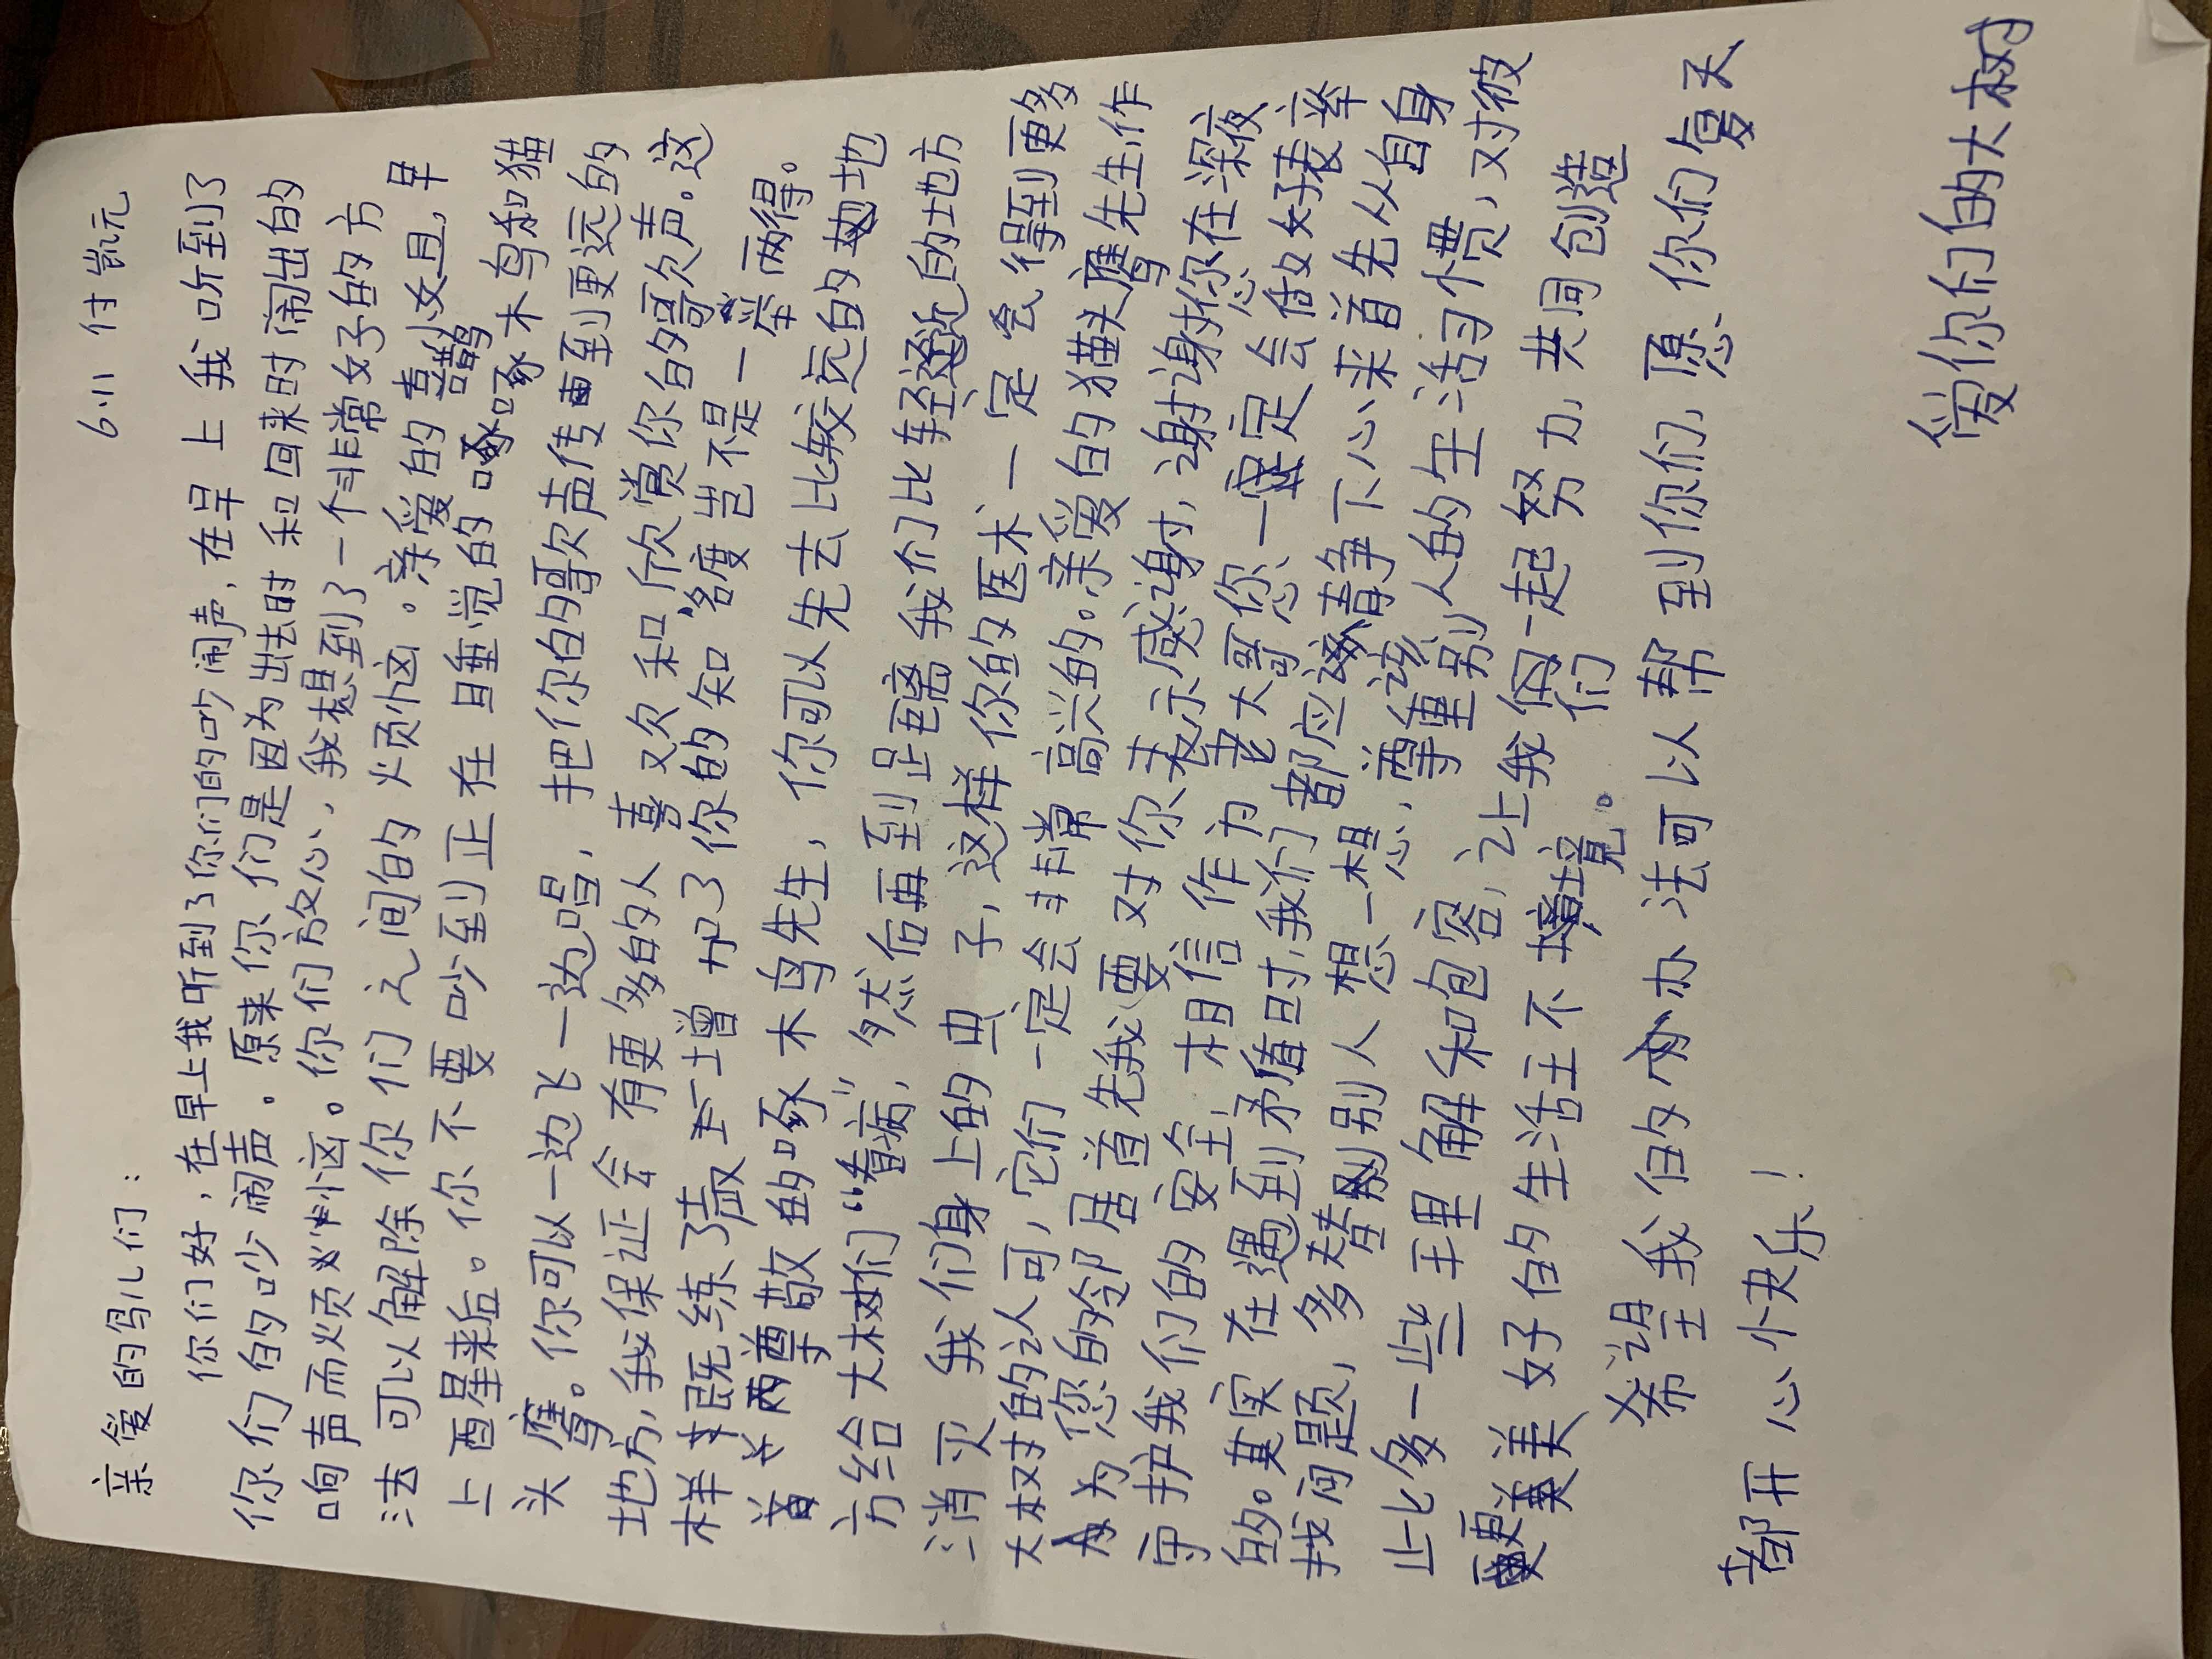 6.11 付凯元
亲爱的鸟儿们：
你们好，在早上我听到了你们的吵闹声，在早上我听到了
你们的吵闹声。原来你们是因为出去时和回来时闹出的
响声而烦恼。你们放心，我想到了一个非常好的方
法可以解除你们之间的烦恼。亲爱的喜鹊女且，早
上酉星来后。你不要吵到正在睡觉的啄木鸟和猫
头鹰。你可以一边飞一边唱，把你的哥欠声传到更远的
地方，我保证会有更多的人喜欢和欣赏你的哥欠声。这
样既练了嗓子增加了你的知名度岂不是一举两得。
尊敬的啄木鸟先生，你可以先去比较远的地
方给大树们“看病”，然后再到距离我们比较近的地方
消灭我们身上的虫子，这样你的医术一定会得到更多
大树的认可，它们一定会非常高兴的。亲爱的猫头鹰先生，作
为您的邻居首先我要对你表示感谢，谢谢您在深夜
守护我们的安全，相信作为老大哥您一定会做好表率
的。其实在遇到矛盾时，我们都应该静下心来首先从自身
找问题，多替别人想一想，尊重别人的生活习惯，对彼
止匕多一些王里解和包容，让我们一起努力，共同创造
更美好的生活王不境。
希望我的办法可以帮到你们，愿你们夏天
都开心快乐！
爱你们的大树